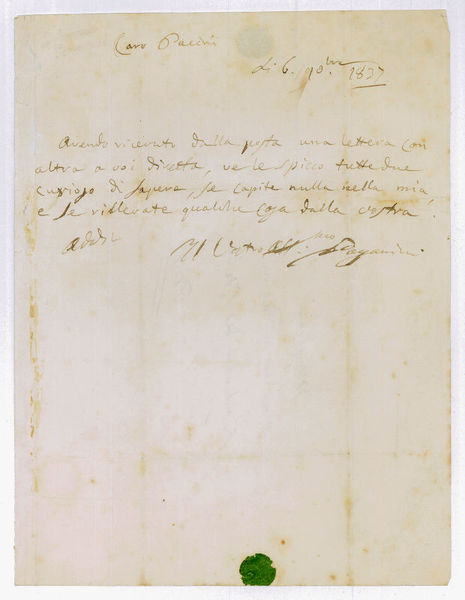 Caro Pacini
Li 6. 10.bre 1837
Avendo ricevuto dalla posta una lettera con
altra a voi diretta, ve le spicco tutte due
curioso di sapere, se capite nulla nella mia,
e se rillevate qualche cosa dalla vostra.
Addio
Il Vostro Aff.mo Paganini